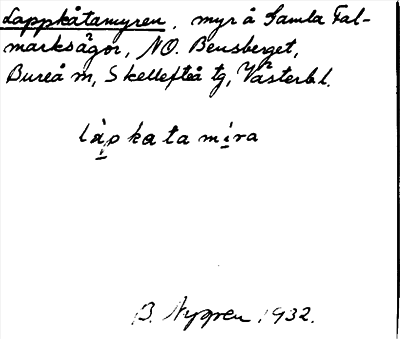 Lappkåtamyren, myr å Gamla Fal-
marksågor, NO. Bensberget,
Bureå sn, Skellefteå tg, Västerb l.
làpkatamíra
B. Nygren 1932.